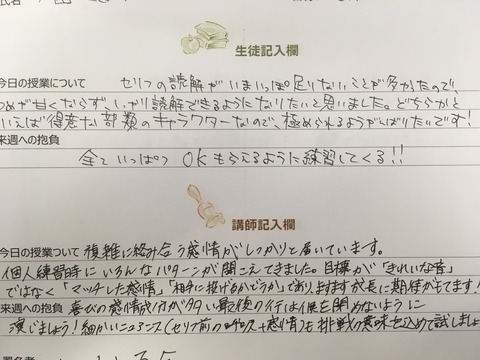 生徒記入欄
今日の授業について セリフの読解がいまいっぽ足りないことが多かったので、
つめが甘くならず、しっかり読解できるようになりたいと思いました。どちらかと
いえば得意な部類のキャラクターなので、極められるようがんばりたいです!
来週への抱負
全ていっぱつOKもらえるように練習してくる!!
講師記入欄
今日の授業ついて 複雑に絡み合う感情がしっかりと届いています。
個人練習時にいろんなパターンが聞こえてきました。目標が「きれいな音」
ではなく「マッチした感情」「相手に投げるかどうか」であり、ますます成長に期待がもてます!
来週への抱負 喜びの感情成分が多い最後の行は
演じましょう!細かいニュアンス(セリフ前の呼吸+感情)も挑戦の意味を込めて試しましょ